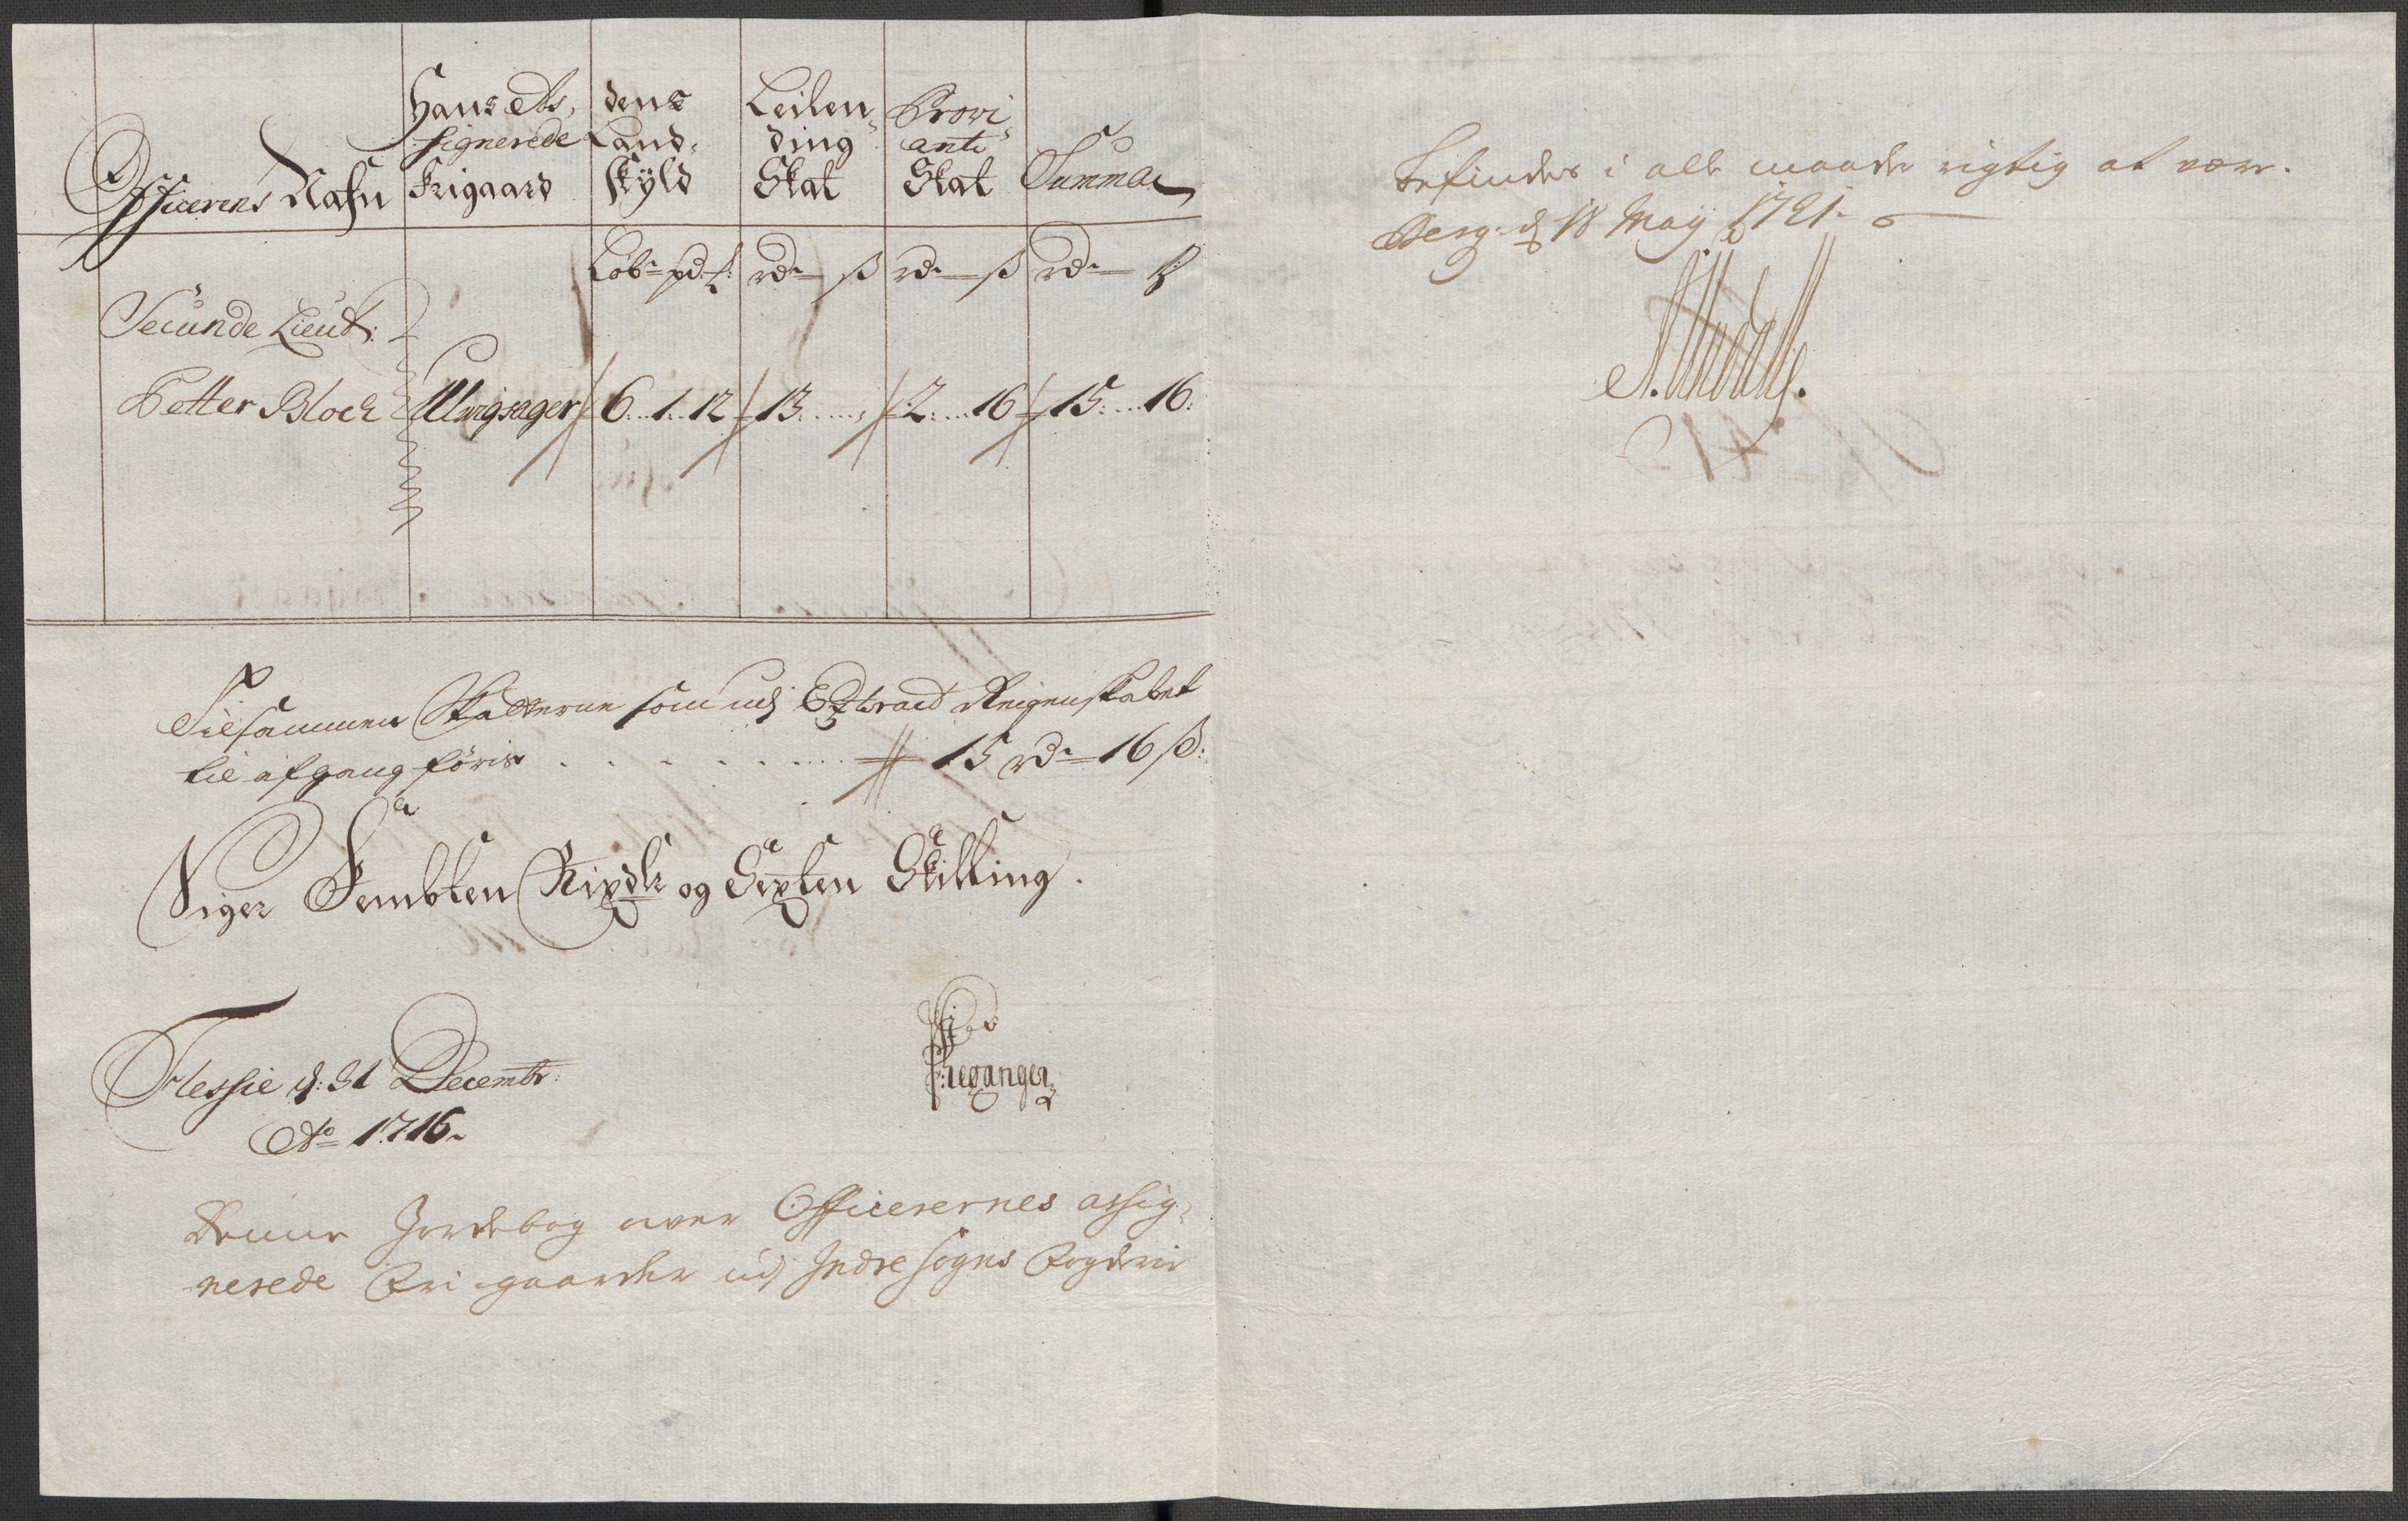 Officerens Nafn
Hans As,
signerede
Frigaard
dens
Land,
skÿld
Leilen,
ding
Skat
Provi,
ant
Skat
Summa
Løb:pd: rd: ß rd: ß rd: ß
Secunde Lieut:
Petter Bloch 6..1..12 13..... 2....16 15....16:
Tilsammen Skatterne som udj Reigenskabet
til afgang føris . . . . . . . 15 rd: 16 ß:
Siger Fembten Rixdlr og Sexten Skilling.
Flessie d: 31 Decembr:
Ao 1716.
Denne Jordebog over Officerernes assig,
nerede Fri-gaarder udj Indre Sogns Fogderie
Befindes i alle maader rigtig at være.
Berg. d 18 Maÿ 1721.